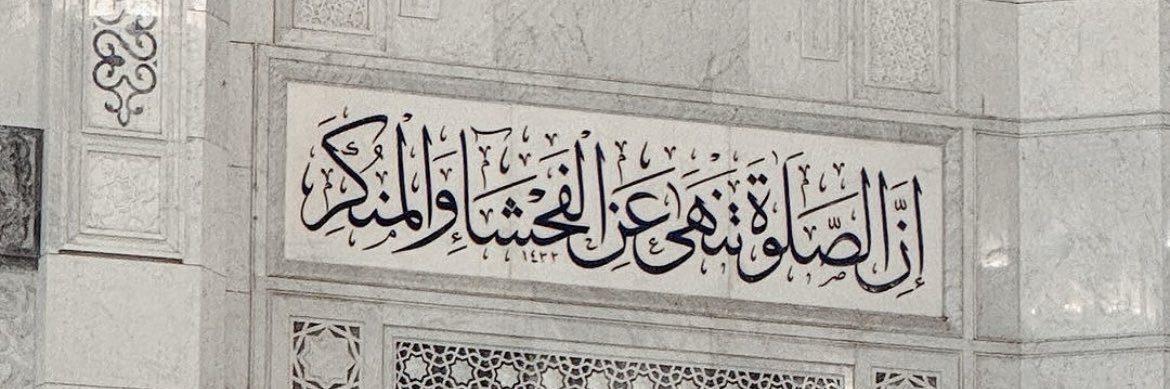 إِنَّ الصَّلَوٰةَ تَنْهَىٰ عَنِ الْفَحْشَاءِ وَالْمُنْكَرِ
١٤٢٢